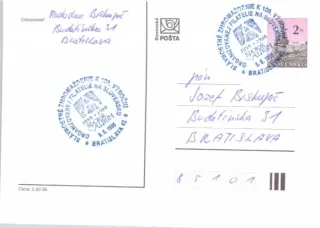 Odosielateľ:
Radoslav Biskupič
Budatínska 31
Bratislava
SLOVENSKÁ
POŠTA
2
SLOVENSKO
SLÁVNOSTNÉ ZHROMAŽDENIE K 100. VÝROČIU
ORGANIZOVANEJ FILATELIE NA SLOVENSKU
BRATISLAVA
SLÁVNOSTNÉ ZHROMAŽDENIE K 100. VÝROČIU
ORGANIZOVANEJ FILATELIE NA SLOVENSKU
BRATISLAVA
pán
Jozef Biskupič
Budatínska 31
BRATISLAVA
85101
Cena: 2,50 Sk